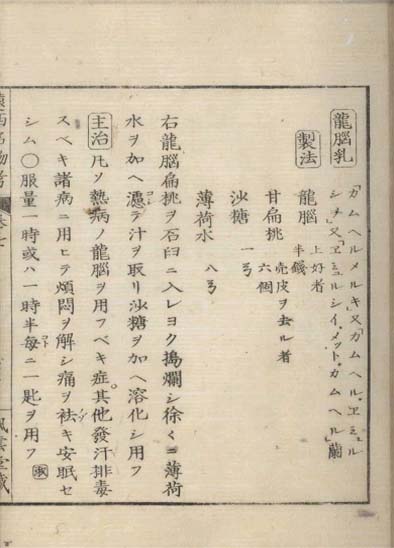 龍腦乳 「カムヘルメルキ」又「カムヘル、ヱミュル
シヲ」又「ヱミュルシイ、メット、カムヘル」蘭
製法
龍腦 上好者 半錢
甘扁桃 六個 売皮ヲ去ル者
沙糖 一ヲ
薄荷水 八ヲ
右龍腦扁桃ヲ石臼ニ入レヨク搗爛シ徐〻ニ薄荷
水ヲ加ヘ濾テ汁ヲ取リ沙糖ヲ加ヘ溶化シ用フ
主治 凡ソ熱病ノ龍腦ヲ用フベキ症。其他發汗排毒
スベキ諸病ニ用ヒテ煩悶ヲ解シ痛ヲ袪キ安眠セ
シム〇服量一時或ハ一時半每ニ一匙ヲ用フ
西名物考 卷七
風雲堂藏